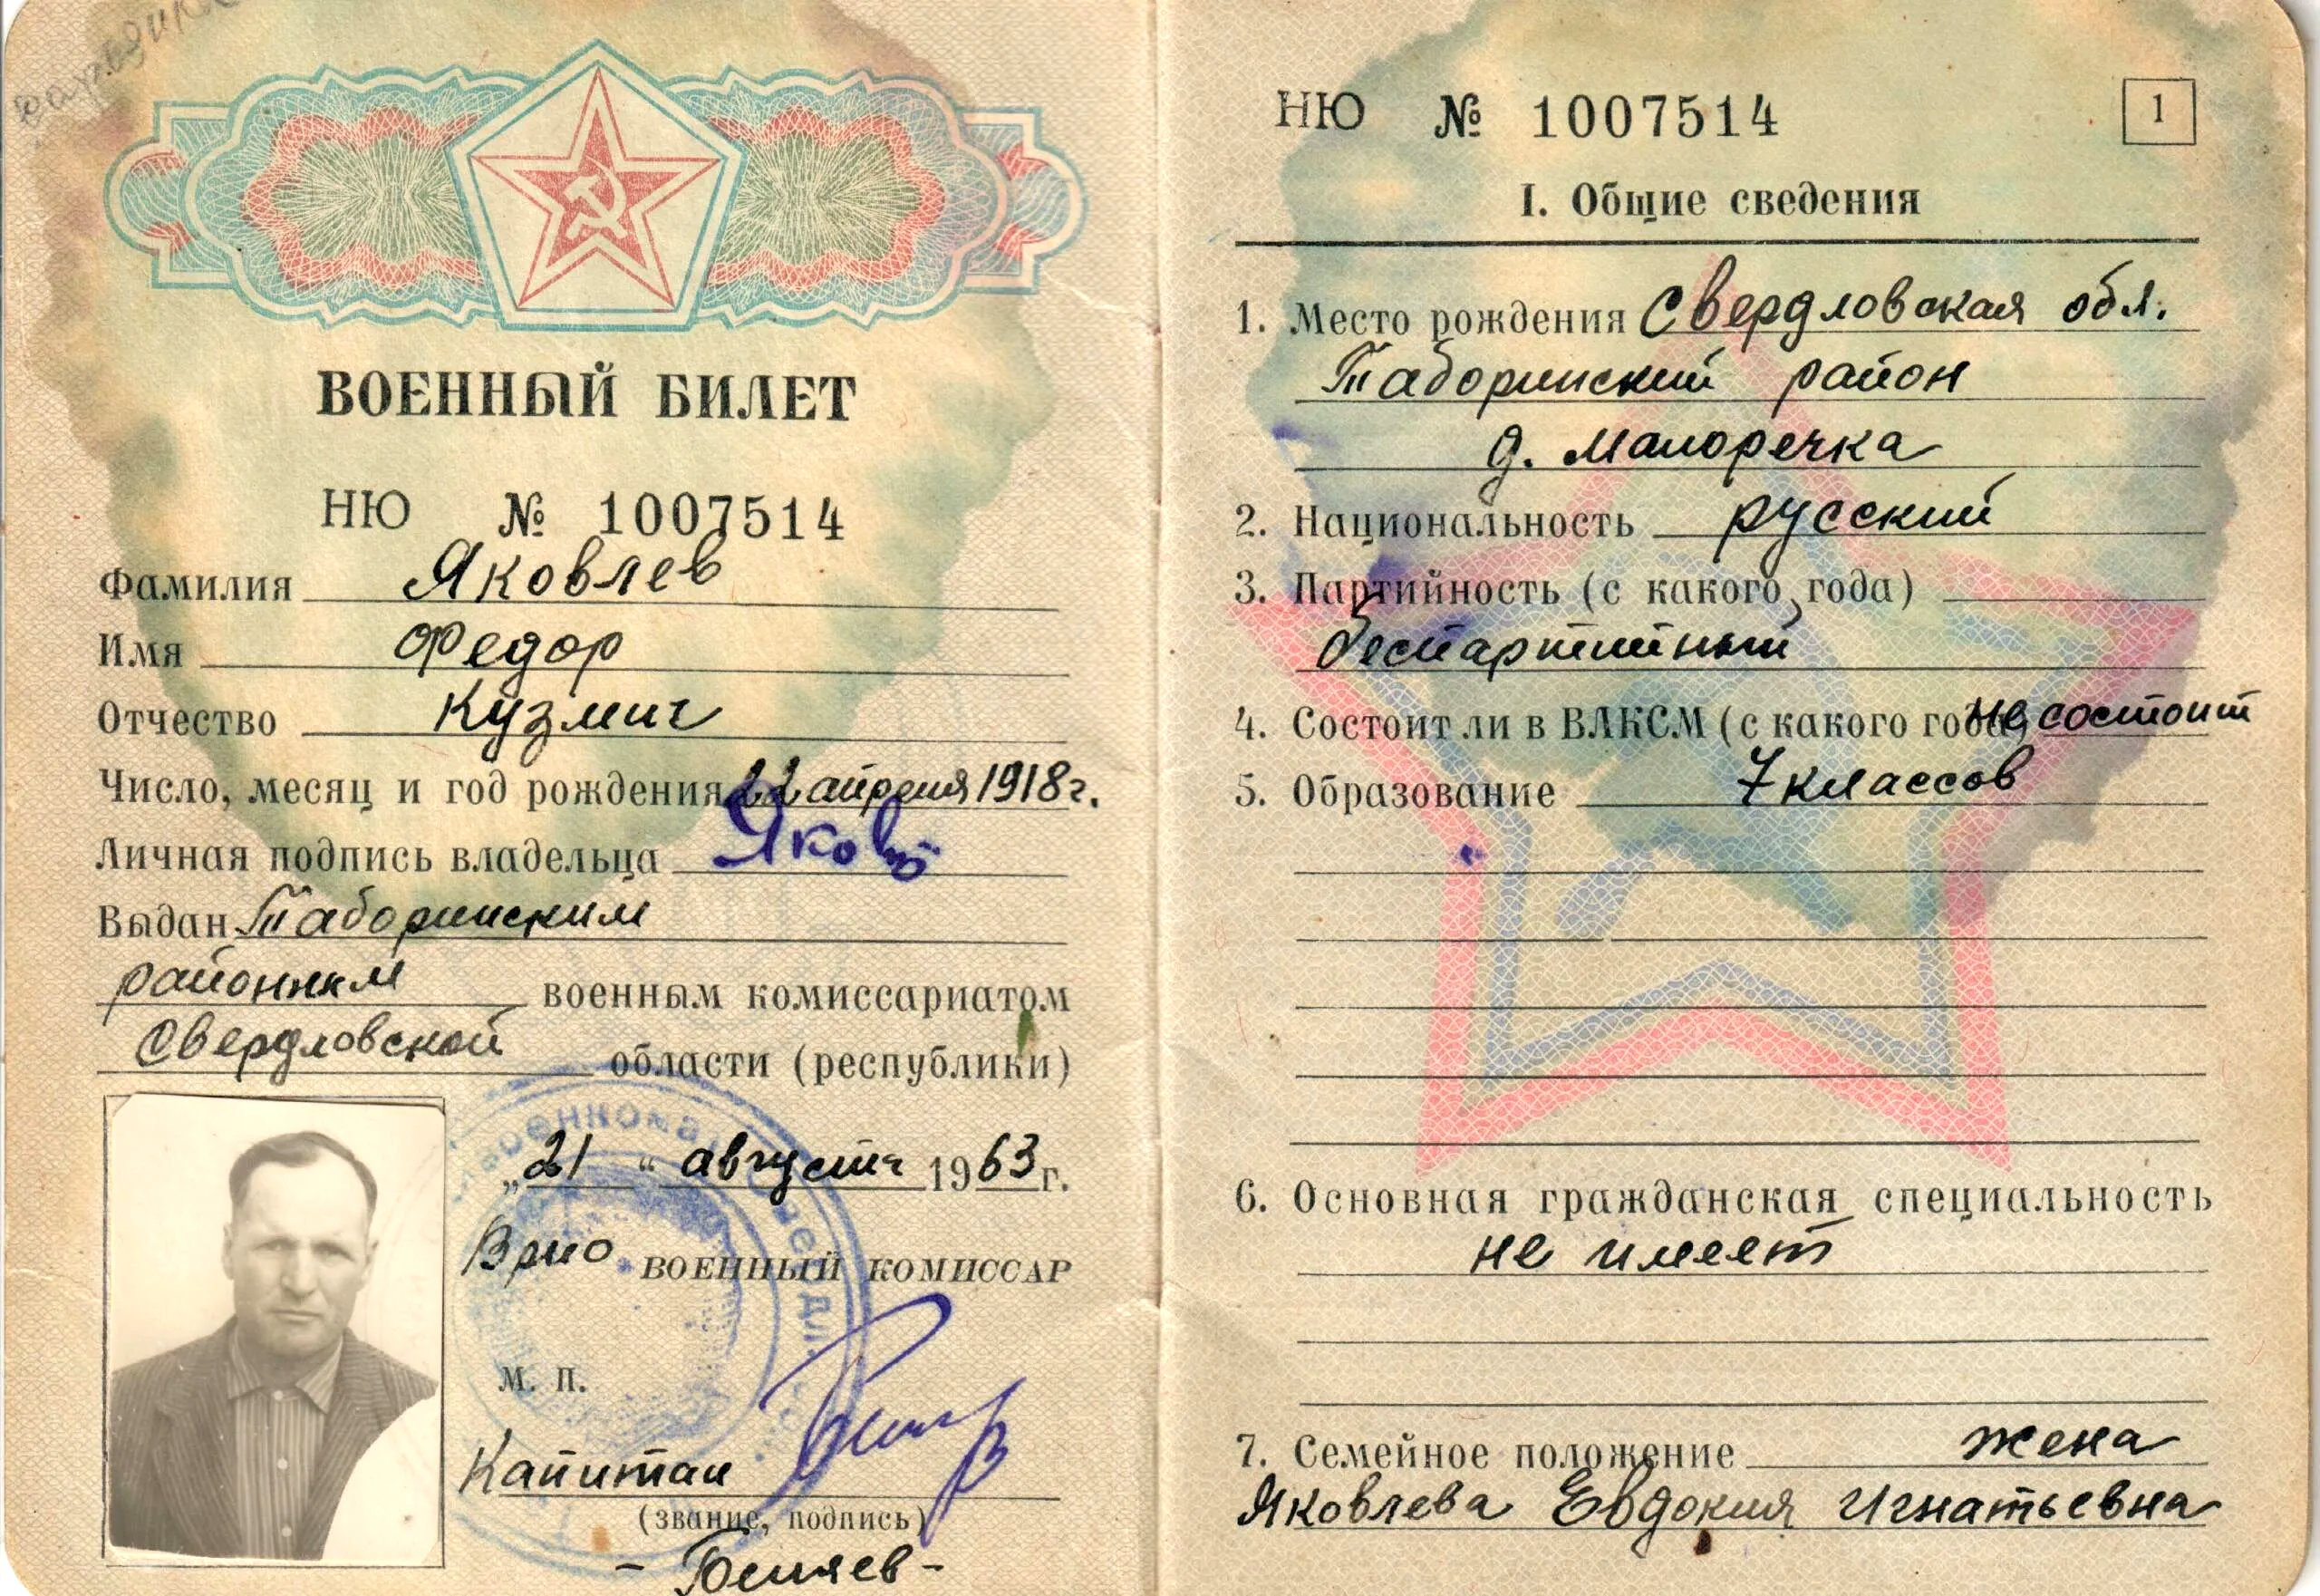 ВОЕННЫЙ БИЛЕТ
НЮ № 1007514
Фамилия Яковлев
Имя Федор
Отчество Кузмич
Число, месяц и год рождения 22 апреля 1918 г.
Личная подпись владельца Яков
Выдан Таборинским
районным военным комиссариатом
Свердловской области (республики)
„21“ августа 1963 г.
Врио ВОЕННЫЙ КОМИССАР
М. П.
Капитан
(звание, подпись)
НЮ № 1007514
1
I. Общие сведения
1. Место рождения Свердловская обл.
Таборинский район
д. Малоречка
2. Национальность русский
3. Партийность (с какого года)
беспартийный
4. Состоит ли в ВЛКСМ (с какого года) не состоит
5. Образование 7 классов
6. Основная гражданская специальность
не имеет
7. Семейное положение жена
Яковлева Евдокия Игнатьевна